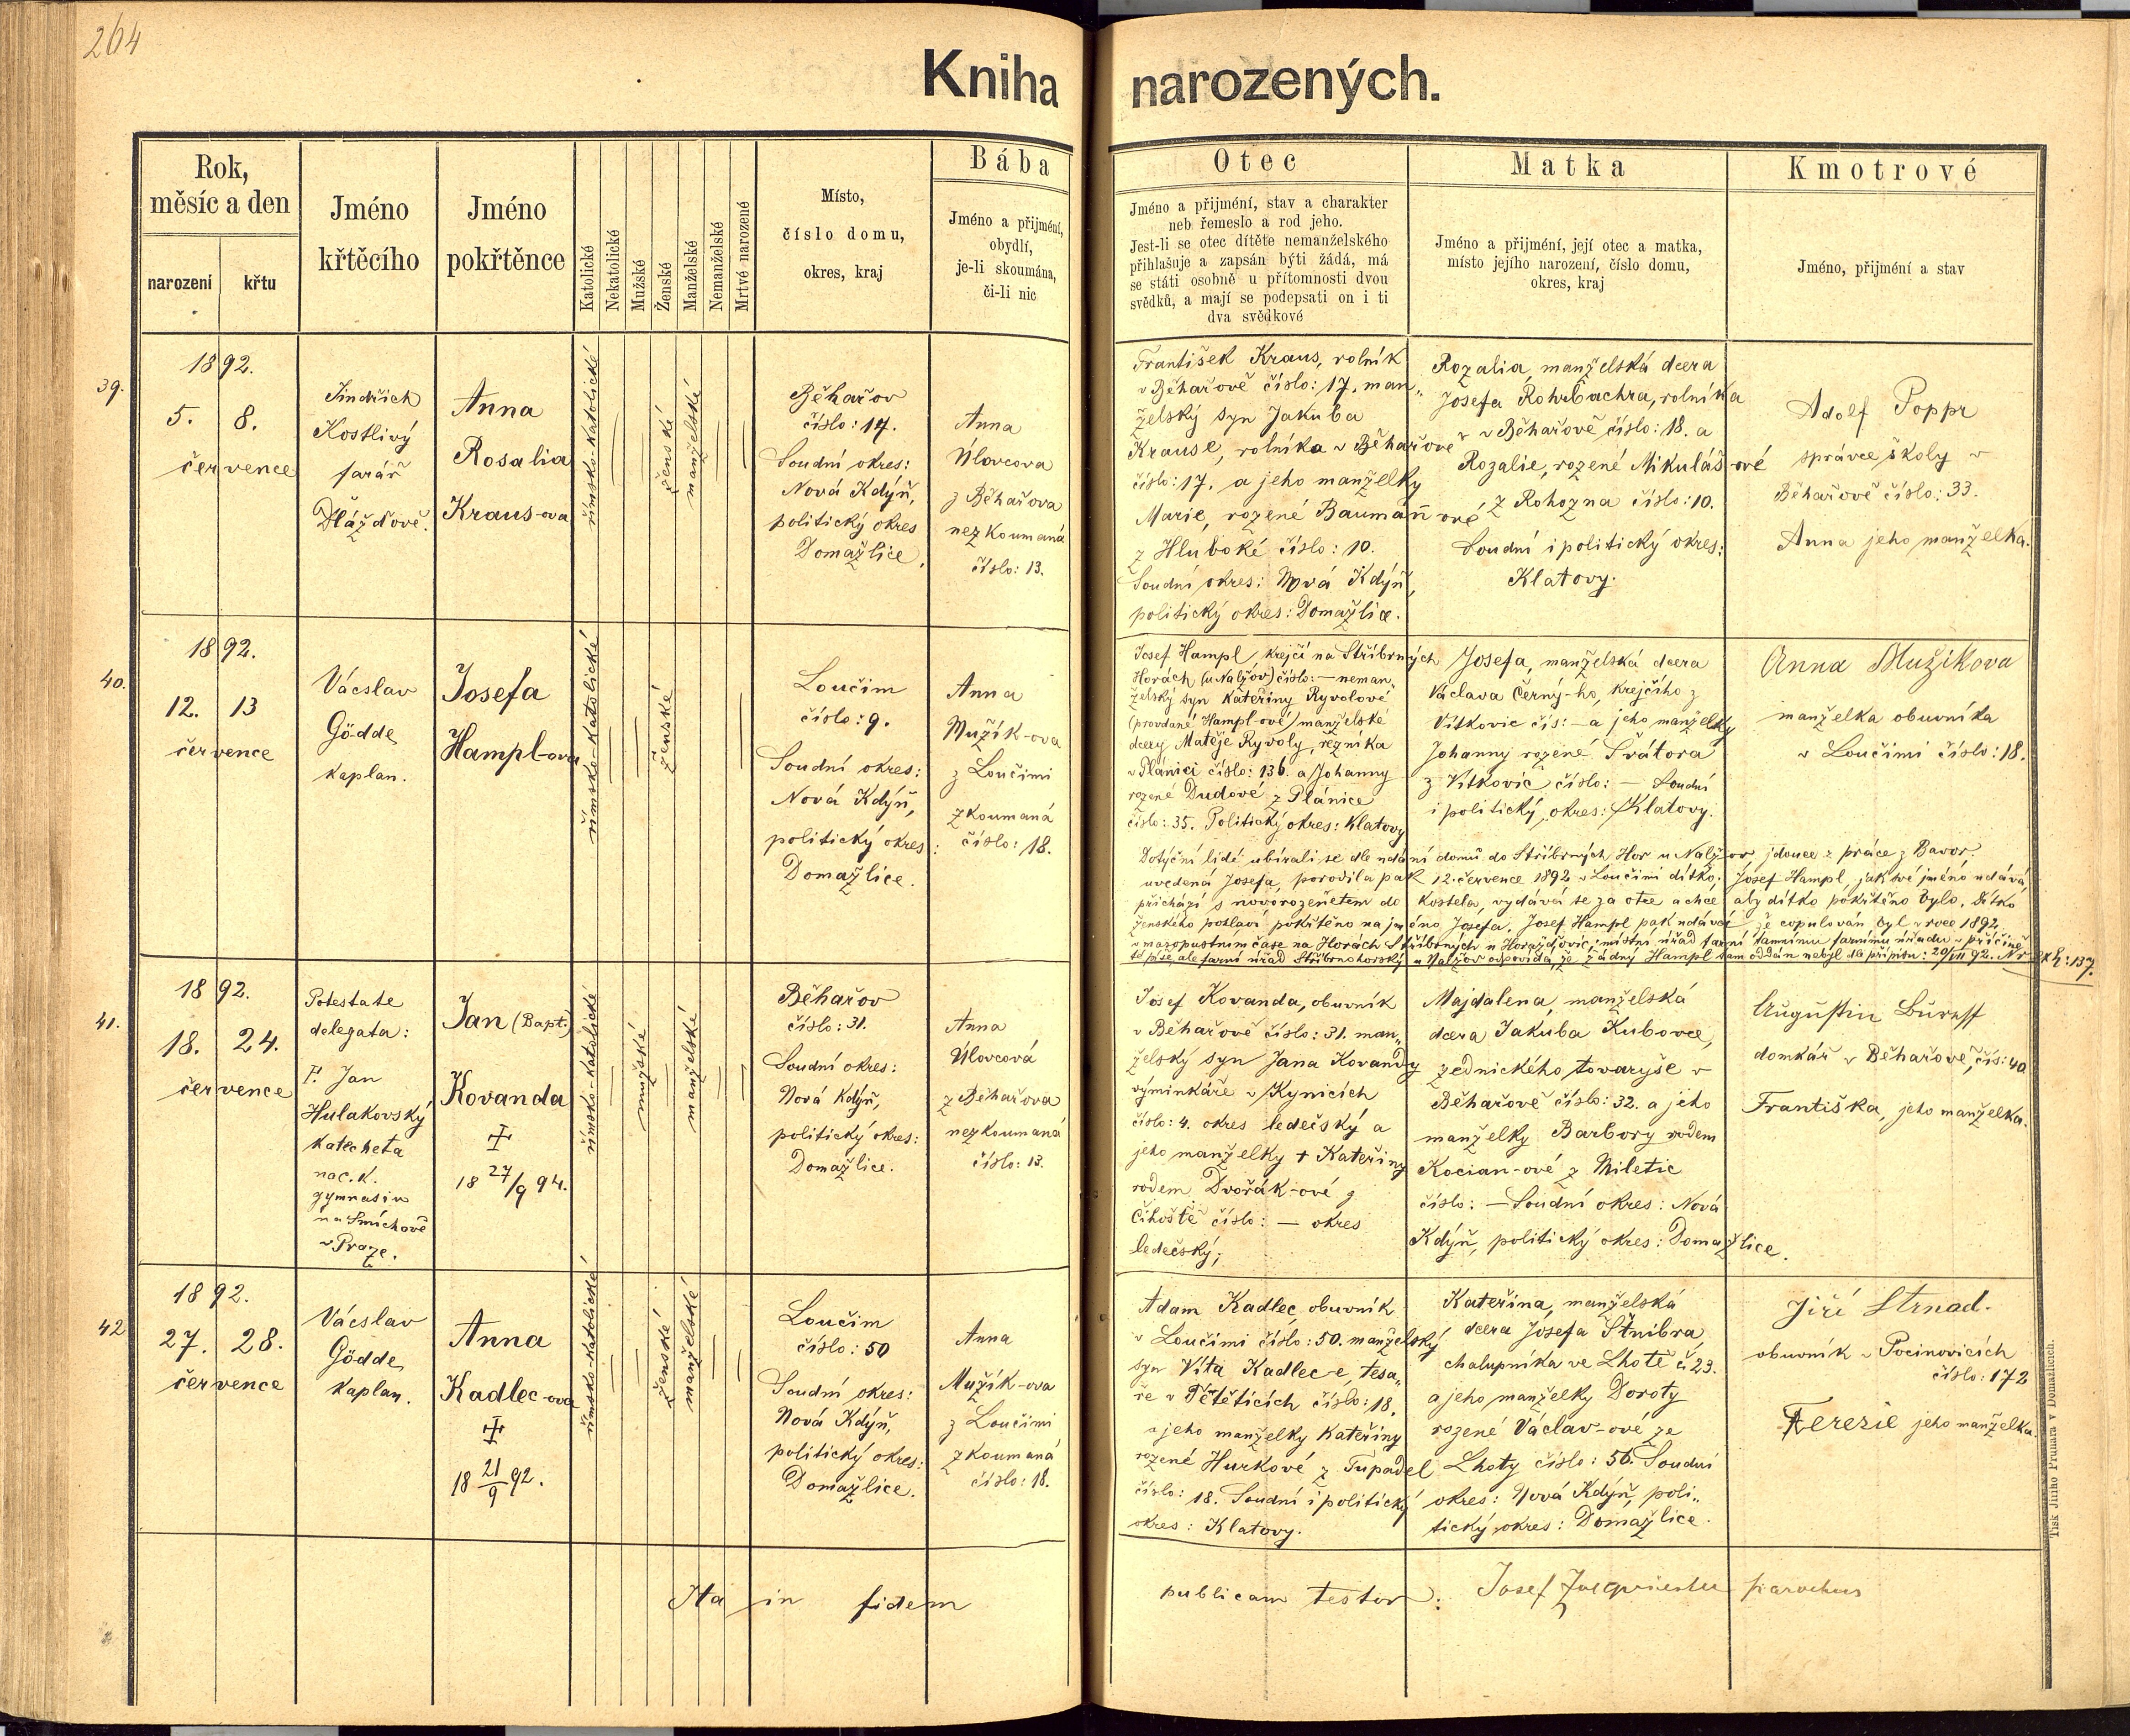 264
Kniha narozených.
Rok,
měsíc a den
narození
křtu
Jméno
křtěcího
Jméno
pokřtěnce
Katolické
Nekatolické
Mužské
Ženské
Manželské
Nemanželské
Mrtvě narozené
Místo,
číslo domu,
okres, kraj
Bába
Jméno a přijmení,
obydlí,
je-li skoumána,
či-li nic
Otec
Jméno a přijmení, stav a charakter
neb řemeslo a rod jeho.
Jest-li se otec dítěte nemanželského
přihlašuje a zapsán býti žádá, má
se státi osobně u přítomnosti dvou
svědků, a mají se podepsati on i ti
dva svědkové
Matka
Jméno a přijmení, její otec a matka,
místo jejího narození, číslo domu,
okres, kraj
Kmotrové
Jméno, přijmení a stav
39.
1892.
5. 8.
července
Jindřich
Kostlivý
farář
Dlážďově.
Anna
Rosalia
Kraus-ova
římsko-katolické
ženské
manželské
Běhařov
číslo: 17.
Soudní okres:
Nová Kdýň,
politický okres
Domažlice.
Anna
Úlovcova
z Běhařova
nezkoumaná
číslo: 13.
František Kraus, rolník
v Běhařově číslo: 17. man„
želský syn Jakuba
Krause, rolníka v Běhařově
číslo: 17. a jeho manželky
Marie, rozené Baumañové
z Hluboké číslo: 10.
Soudní okres: Nová Kdýň,
politický okres: Domažlice.
Rozalia, manželská dcera
Josefa Rohrbachra, rolníka
v Běhařově číslo: 18. a
Rozalie, rozené Mikulášové
z Rohozna číslo: 10.
Soudní i politický okres:
Klatovy.
Adolf Poppr
správce školy v
Běhařově číslo: 33.
Anna jeho manželka.
40.
1892.
12. 13
července
Vácslav
Gödde
kaplan.
Josefa
Hampl-ova
římsko-katolické
ženské
Loučim
číslo: 9.
Soudní okres:
Nová Kdýň,
politický okres:
Domažlice.
Anna
Mužík-ova
z Loučimi
zkoumaná
číslo: 18.
Josef Hampl, krejčí na Stříbrných
Horách (u Nalžov) číslo: — neman„
želský syn Kateřiny Ryvolové
(provdané Hampl-ové) manželské
dcery Matěje Ryvoly, řezníka
v Plánici číslo: 136. a Johanny
rozené Dudové z Plánice
číslo: 35. Politický okres: Klatovy
Josefa, manželská dcera
Václava Černý-ho, krejčího z
Vítkovic čís: — a jeho manželky
Johanny rozené Svátora
z Vítkovic číslo: — Soudní
i politický okres: Klatovy.
Anna Mužikova
manželka obuvníka
v Loučimi číslo: 18.
Dotyční lidé ubírali se dle udání domů do Stříbrných Hor u Nalžov jdouce z práce z Bavor.
uvedená Josefa, porodila pak 12. července 1892 v Loučimi dítko; Josef Hampl, jak své jméno udává,
přichází s novorozenětem do kostela, vydává se za otce a chce aby dítko pokřtěno bylo. Dítko
ženského pohlaví pokřtěno na jméno Josefa. Josef Hampl pak udává že copulován byl v roce 1892
v masopustním čase na Horách Stříbrných u Horažďovic; místní úřad farní tamnímu farnímu úřadu v příčině
té píše, ale farní úřad Stříbrnohorský u Nalžov odpovídá, že žádný Hampl tam oddán nebyl dle přípisu: 20/VII 92. Nr exh: 137.
41.
1892.
18. 24.
července
Potestate
delegata:
P. Jan
Hulakovský
katecheta
na c. k.
gymnasiu
na Smíchově
v Praze.
Jan (Bapt.)
Kovanda
18 27/9 94.
římsko-katolické
mužské
manželské
Běhařov
číslo: 31.
Soudní okres:
Nová Kdýň,
politický okres:
Domažlice.
Anna
Úlovcová
z Běhařova
nezkoumaná
číslo: 13.
Josef Kovanda, obuvník
v Běhařově číslo: 31. man„
želský syn Jana Kovandy
výminkáře v Kynicích
číslo: 4. okres ledečský a
jeho manželky + Kateřiny
rodem Dvořák-ové z
Číhoště číslo: — okres
ledečský;
Majdalena, manželská
dcera Jakuba Kubovce,
zednického tovaryše v
Běhařově číslo: 32. a jeho
manželky Barbory rodem
Kocian-ové z Miletic
číslo: — Soudní okres: Nová
Kdýň, politický okres: Domažlice.
Augustin
domkář v Běhařově, čís: 40
Františka, jeho manželka.
42
1892.
27. 28.
července
Vácslav
Gödde
kaplan.
Anna
Kadlec-ova
18 21/9 92.
římsko-katolické
ženské
manželské
Loučim
číslo: 50
Soudní okres:
Nová Kdýň,
politický okres:
Domažlice.
Anna
Mužík-ova
z Loučimi
zkoumaná
číslo: 18.
Adam Kadlec, obuvník
v Loučimi číslo: 50. manželský
syn Víta Kadlec-e, tesa„
ře v Tětěticích číslo: 18.
a jeho manželky Kateřiny
rozené Hurkové z Tupadel
číslo: 18. Soudní i politický
okres: Klatovy.
Kateřina, manželská
dcera Josefa Štnibra
chalupníka ve Lhotě č. 23.
a jeho manželky Doroty
rozené Václav-ové ze
Lhoty číslo: 56. Soudní
okres: Nová Kdýň, poli„
tický okres: Domažlice.
Jiří Strnad.
obuvník v Pocinovicích
číslo: 172
Terezie jeho manželka.
Ita in fidem publicam testor: Josef parochus
Tisk Jiřího Prunara v Domažlicích.